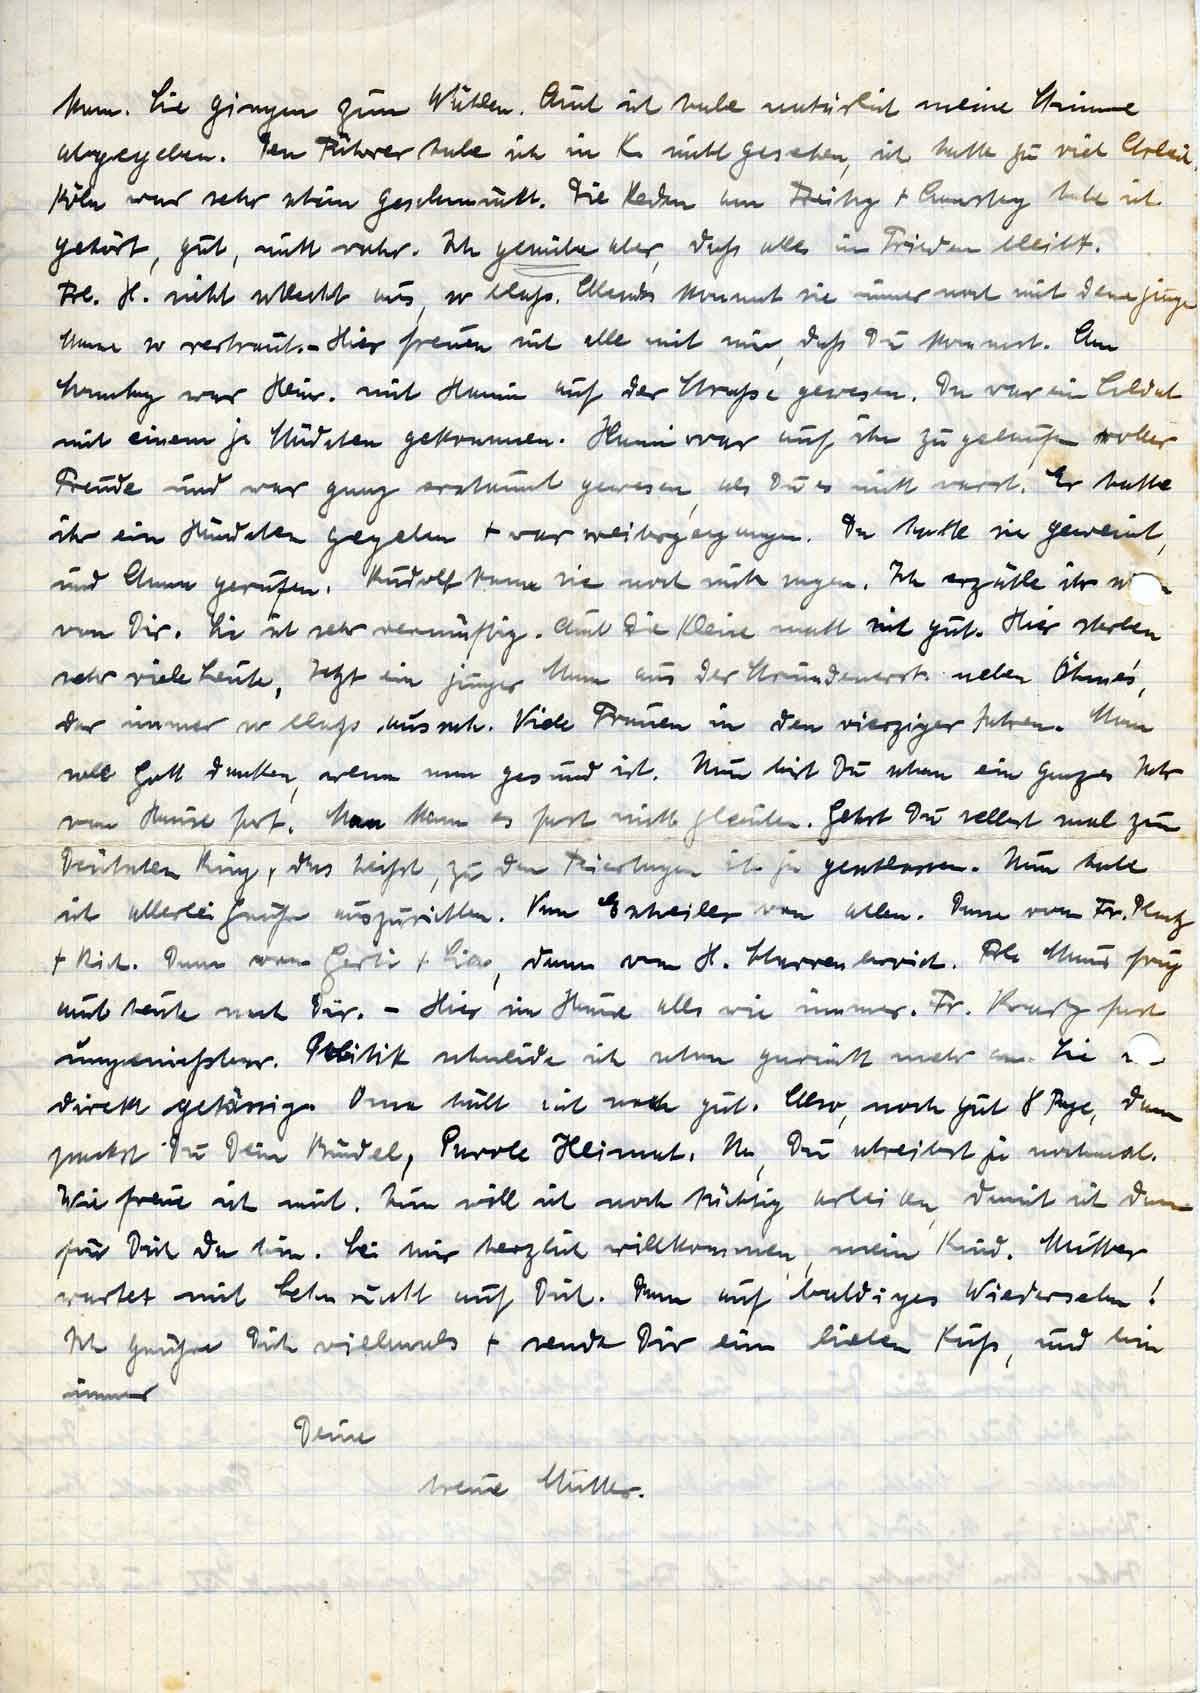 kam. Sie gingen zum Wählen. Auch ich habe natürlich meine Stimme
abgegeben. Den Führer habe ich in K. nicht gesehen, ich hatte zu viel Arbeit.
Köln war sehr schön geschmückt. Die Reden am Freitag + Samstag habe ich
gehört, gut, nicht wahr. Ich glaube aber, daß alles in Frieden bleibt.
Frl. H. sieht schlecht aus, so blaß. Abends kommt sie immer noch mit dem jungen
Mann so vertraut. - Hier freuen sich alle mit mir, daß Du kommst. Am
Sonntag war Heinr. mit Hanni auf der Straße gewesen. Da war ein Soldat
mit einem jg Mädchen gekommen. Hanni war auf ihn zugelaufen voller
Freude und war ganz erstaunt gewesen, als Du es nicht warst. Er hatte
ihr ein Händchen gegeben + war weitergegangen. Da hatte sie geweint,
und gerufen. Rudolf kann sie noch nicht sagen. Ich erzähle ihr
von Dir. Sie ist sehr vernünftig. Auch die Kleine macht sich gut. Hier sterben
sehr viele Leute, Jetzt ein junger Mann aus der neben Öhmes,
der immer so blaß aussah. Viele Frauen in den vierziger Jahren. Man
soll Gott danken, wenn man gesund ist. Nun bist Du schon ein ganzes Jahr
von Hause fort. Man kann es fast nicht glauben. Gehst Du selbst mal zum
Deutschen Ring, das heißt, zu den Feiertagen ist ja geschlossen. Nun habe
ich allerlei Grüße auszurichten. Von Eschweiler von allen. Dann von Fr.
+ Rich. Dann von Gerti + Lia, dann von H. Frl. frug
auch heute nach Dir. - Hier im Hause alles wie immer. Fr. fast
ungenießbar. Politik schneide ich schon gar nicht mehr an. Sie
direkt gehässig. Oma hält sich noch gut. Also, noch gut 8 Tage, dann
packst Du Dein Bündel, Parole Heimat. Na, Du schreibst ja nochmal.
Wie freue ich mich. Nun will ich noch tüchtig arbeiten, damit ich dann
für Dich da bin. Sei mir herzlich willkommen, mein Kind. Mutter
wartet mit Sehnsucht auf Dich. Dann auf baldiges Wiedersehn!
Ich grüße Dich vielmals + sende Dir ein lieben Kuß, und bin
immer
Deine
treue Mutter.